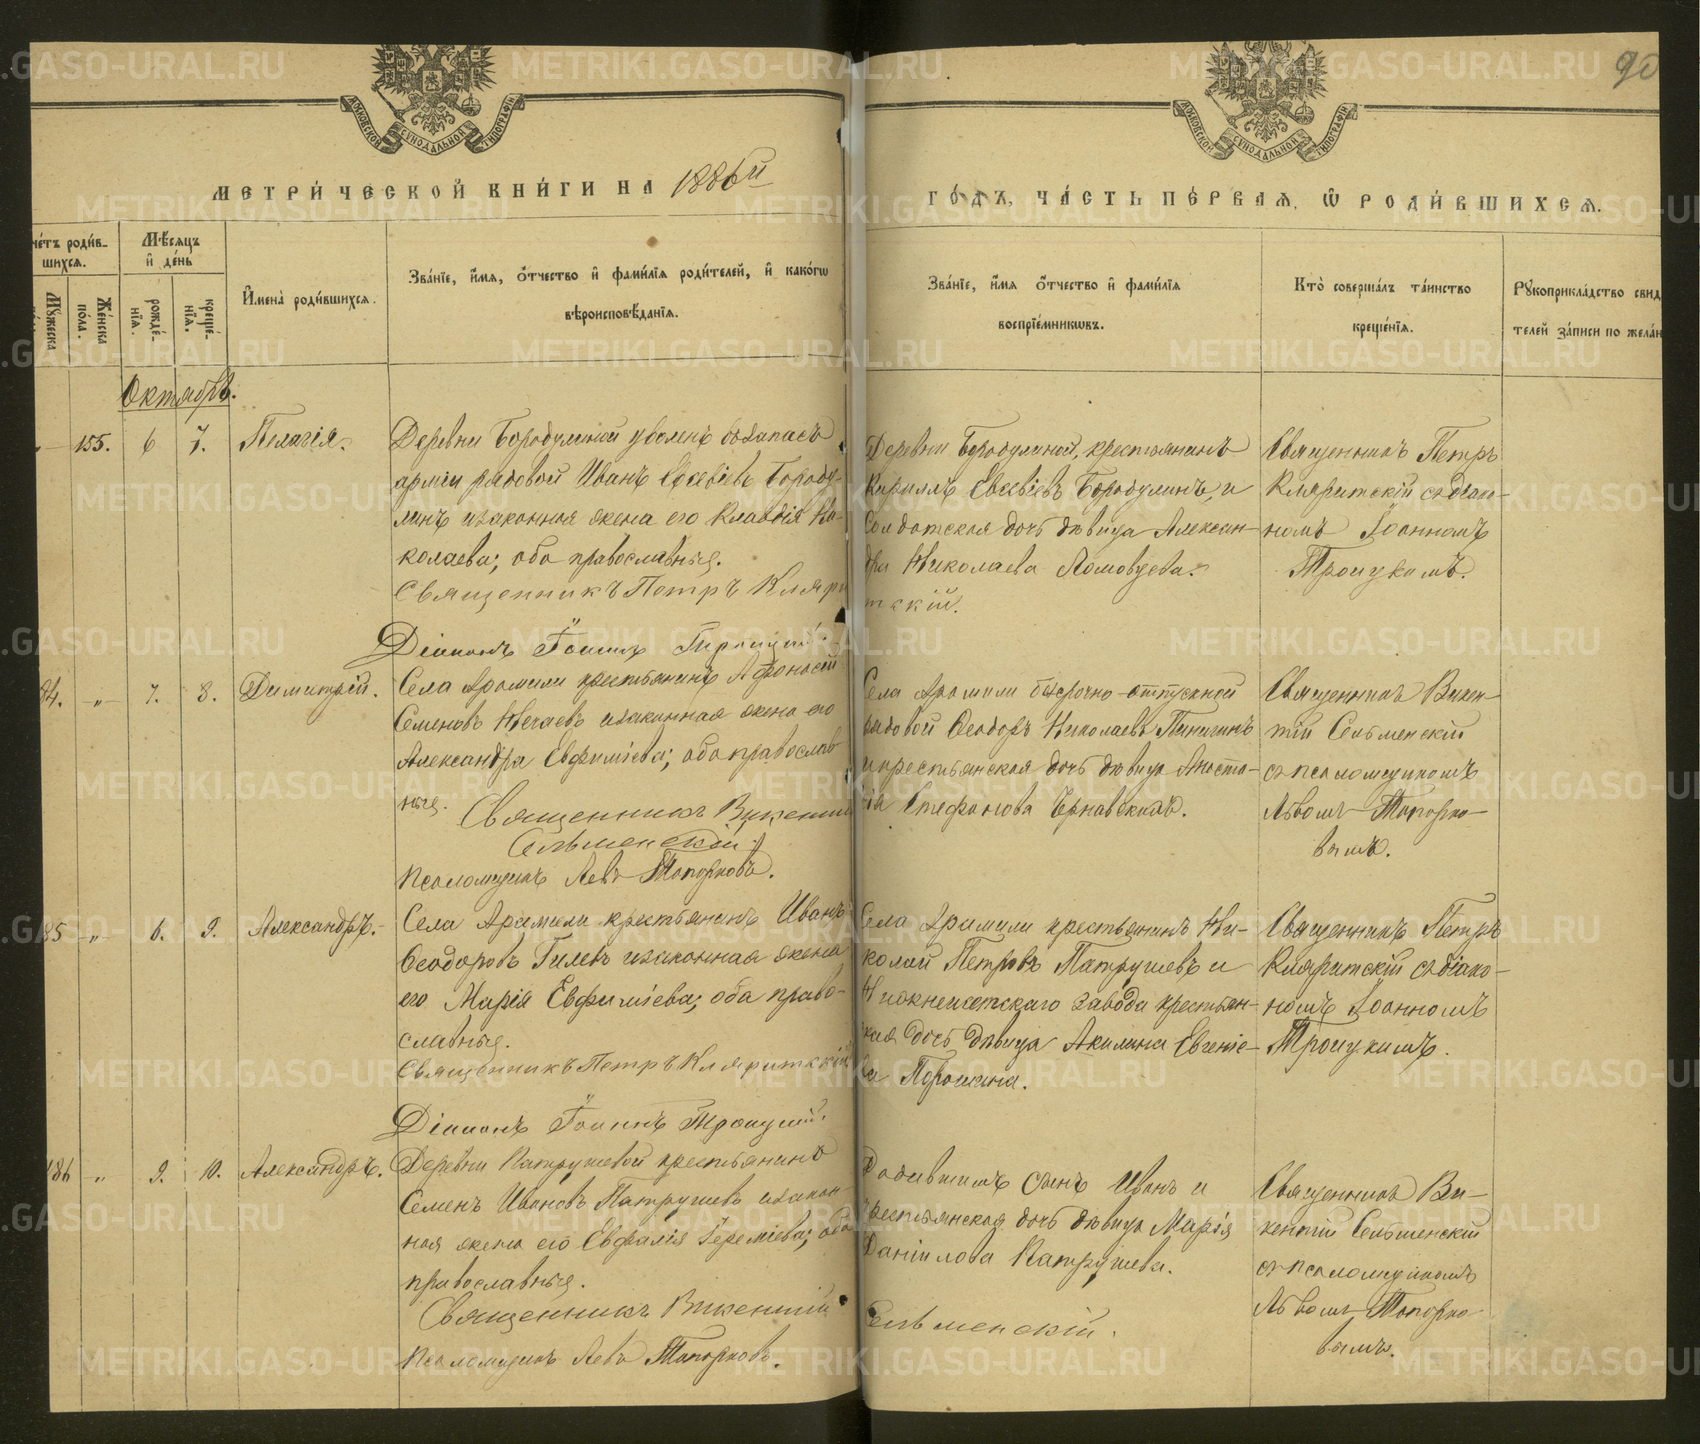 90
МОСКОВСКОЙ СУНОДАЛЬНОЙ ТИПОГРАФІИ
МОСКОВСКОЙ СУНОДАЛЬНОЙ ТИПОГРАФІИ
МЕТРИ́ЧЕСКОЙ КНИ́ГИ НА 1886й
ГО́ДЪ, ЧА́СТЬ ПЕ́РВАѦ, Ѡ҆ РОДИ́ВШИХСѦ.
че́тъ роди́в-
шихсѧ.
Мѣ́сѧцъ
и҆ де́нь
Мꙋ́жеска
Же́нска
по́ла.
рожде́-
нїѧ.
креще́-
нїѧ.
И҆мена̀ роди́вшихсѧ.
Зва́нїе, и҆́мѧ, ѻ҆́тчество и҆ фами́лїѧ роди́телей, и҆ како́гѡ
вѣроисповѣ́данїѧ.
Зва́нїе, и҆́мѧ ѻ҆́тчество и҆ фами́лїѧ
воспрїе́мникѡвъ.
Кто̀ соверша́лъ та́инство
креще́нїѧ.
Рꙋкоприкла́дство свид
телей за́писи по жела́н
Октябрь.
155. 6 7. Пелагія.
Деревни Бородулиной уволенъ въ запасъ
арміи рядовой Иванъ Евсевіевъ Бороду-
линъ и законная жена его Клавдія Ни-
колаева; оба православные.
Священникъ Петръ Кляри
тскій.
Діаконъ Іоаннъ Троицкій.
Деревни Бородулиной, крестьянинъ
Кириллъ Евсевіевъ Бородулинъ, и
Солдатская дочь дѣвица Алексан-
дра Николаева
Священникъ Петръ
Кляритскій съ діако-
номъ Іоанномъ
Троицкимъ.
84. " 7. 8. Димитрій.
Села Арамили крестьянинъ Афонасій
Семеновъ Нечаевъ и законная жена его
Александра Евфиміева; оба православ-
ные.
Священникъ Викентій
Сельменскій
Псаломщикъ Левъ Топорковъ.
Села Арамили безсрочно-отпускной
рядовой Ѳеодоръ Николаевъ
и крестьянская дочь дѣвица Анаста-
сія Стефанова Чернавскихъ.
Священникъ Викен-
тій Сельменскій
съ псаломщикомъ
Львомъ Топорко-
вымъ.
85 " 6. 9. Александръ.
Села Арамили крестьянинъ Иванъ
Ѳеодоровъ Гилевъ и законная жена
его Марія Евфиміева; оба право-
славные.
Священникъ Петръ Кляритскій
Діаконъ Іоаннъ Троицкій.
Села Арамили крестьянинъ Ни-
колай Петровъ Патрушевъ и
Нижнеисетскаго завода крестьян-
ская дочь дѣвица Акилина Евгеніе-
ва Порошина.
Священникъ Петръ
Кляритскій съ діако-
номъ Іоанномъ
Троицкимъ.
186 " 9. 10. Александръ.
Деревни Патрушевой крестьянинъ
Семенъ Ивановъ Патрушевъ и закон-
ная жена его Евфалія Іереміева; оба
православные.
Священникъ Викентій
Сельменскій.
Псаломщикъ Левъ Топорковъ.
Родившимъ сынъ Иванъ и
крестьянская дочь дѣвица Марія
Даніилова Патрушева.
Священникъ Ви-
кентій Сельменскій
съ псаломщикомъ
Львомъ Топорко-
вымъ.
METRIKI.GASO-URAL.RU